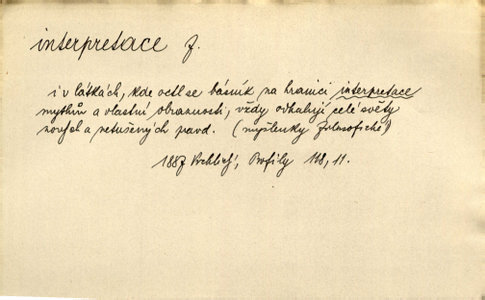 interpretace f.
i v látkách, kde octl se básník na hranici interpretace
mythů a vlastní obraznosti, vždy odhalují celé světy
nových a netušených pravd. (myšlenky filosofické)
1887 Vrchlický, Profily 118, 11.